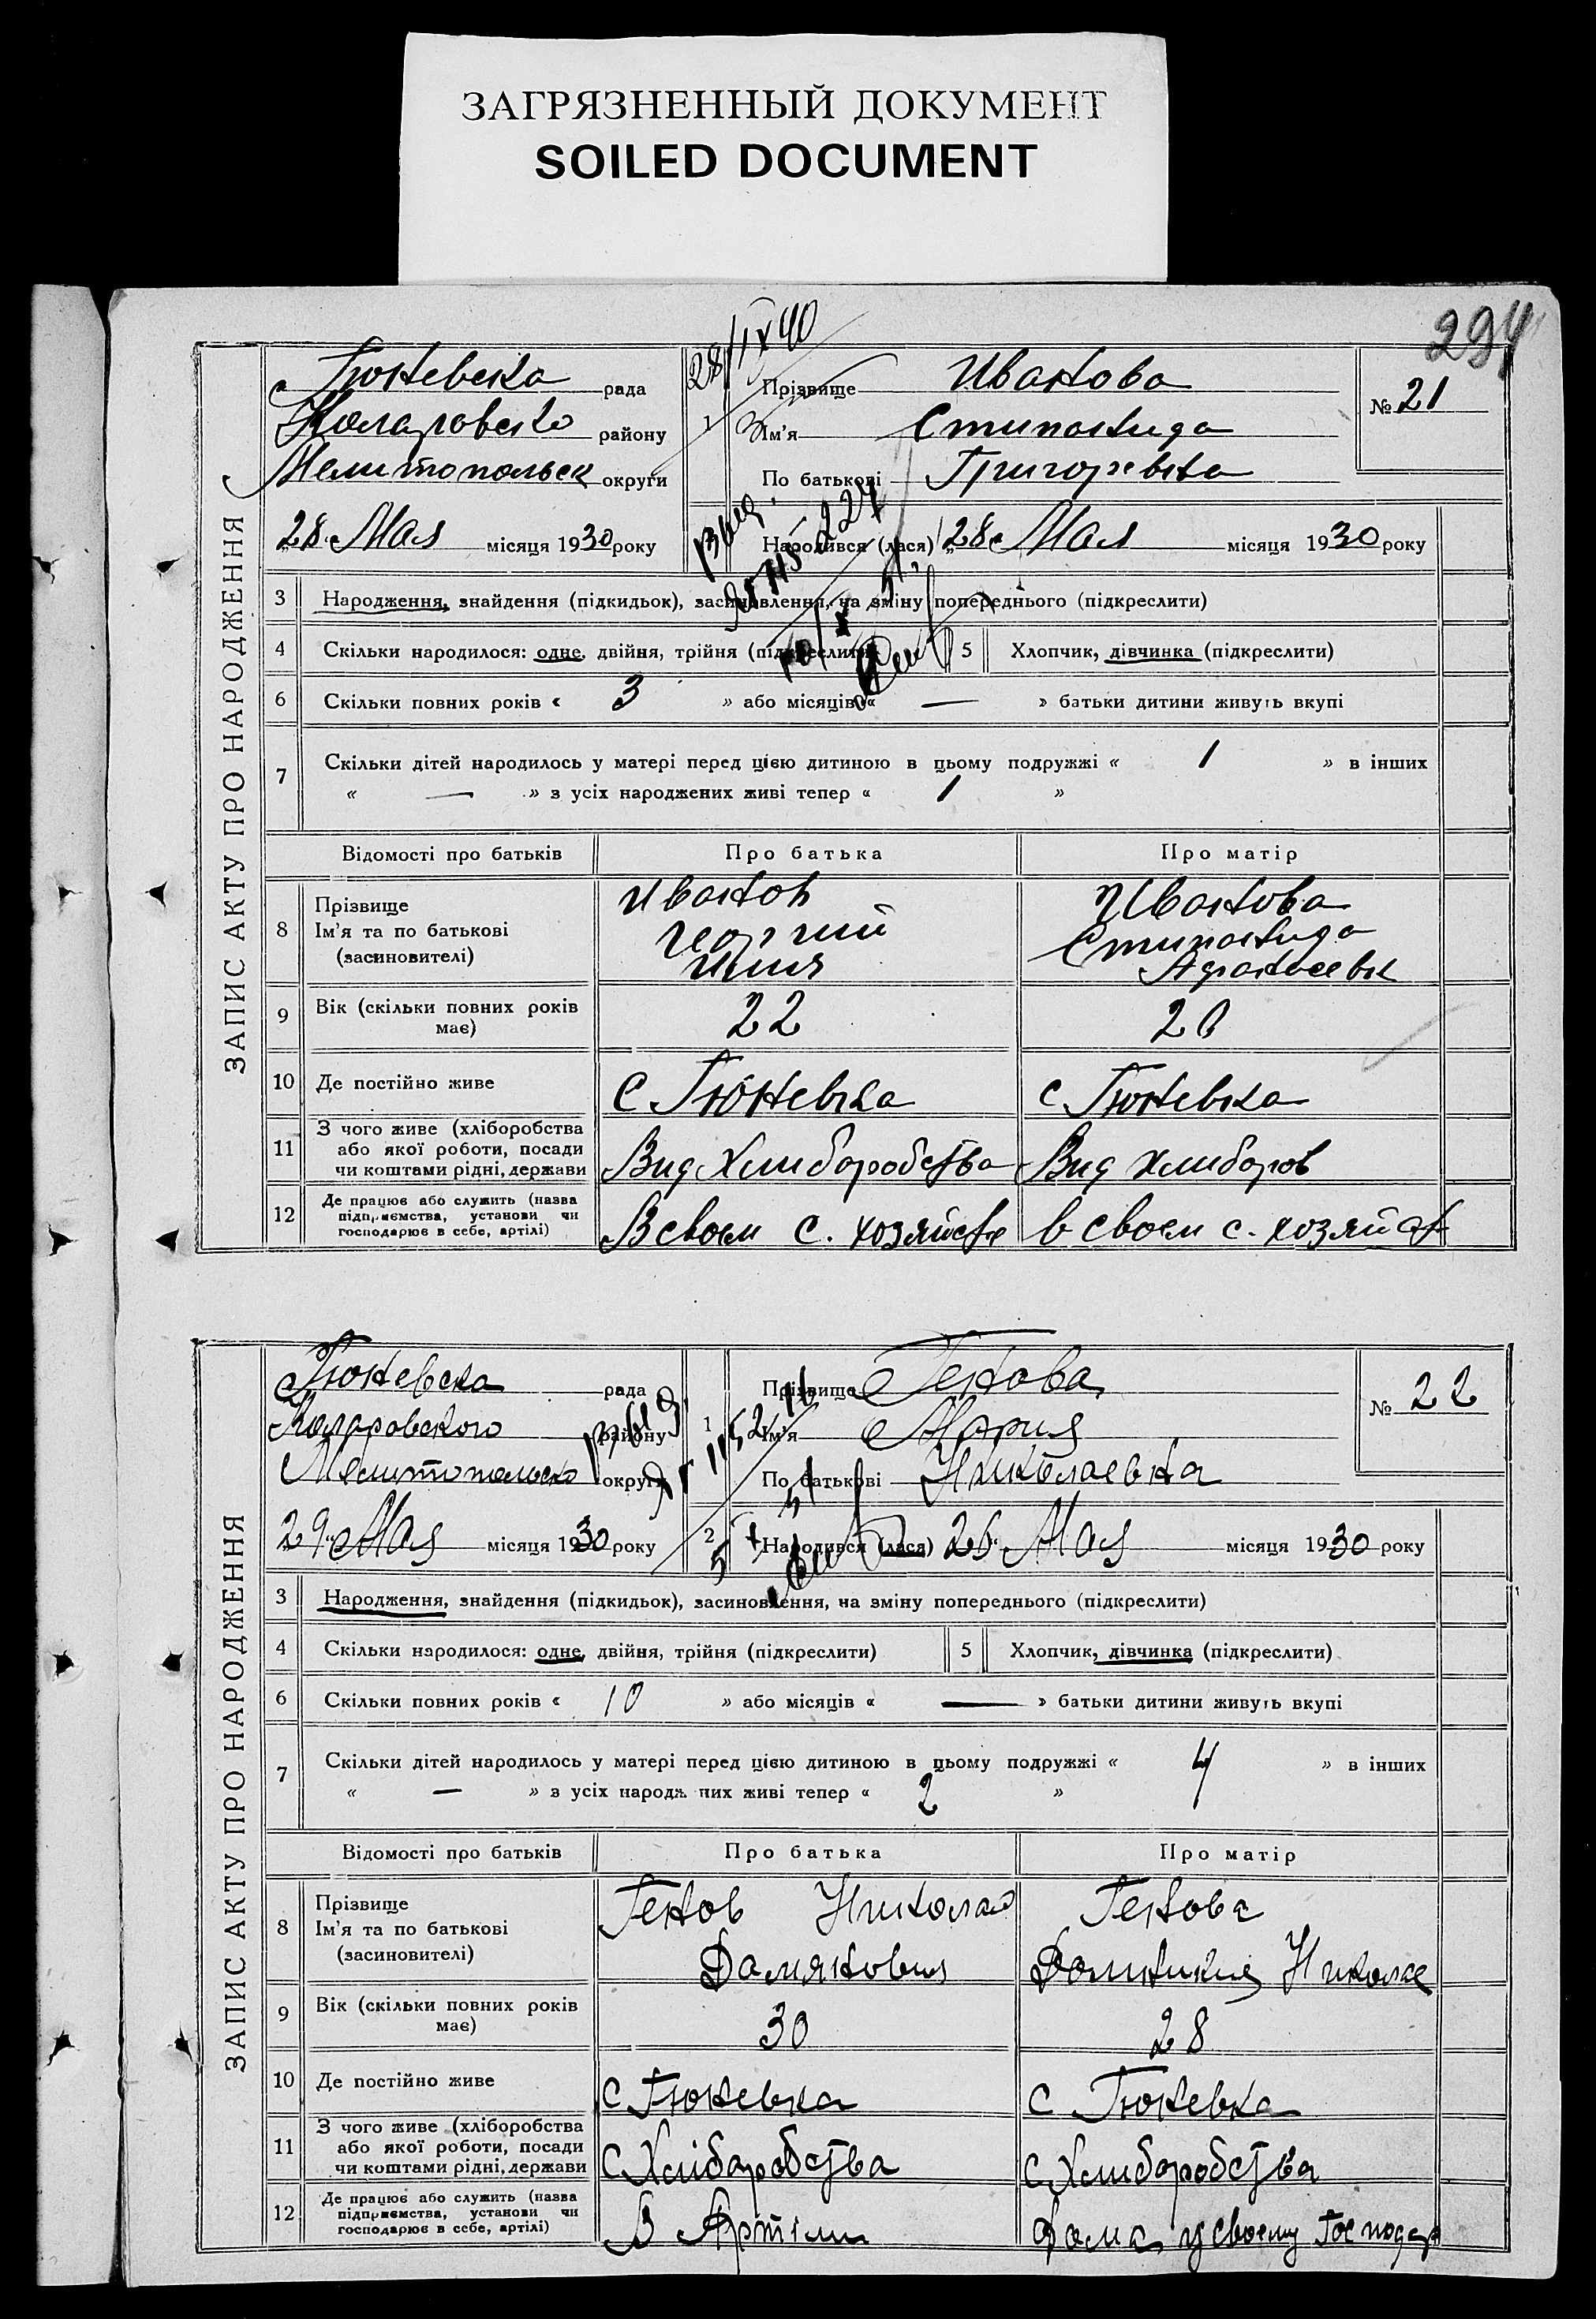 ЗАГРЯЗНЕННЫЙ ДОКУМЕНТ
SOILED DOCUMENT
294
ЗАПИС АКТУ ПРО НАРОДЖЕННЯ
Гюневска рада
районy
Мелитопольск округи
28 Мая місяця 1930 року
28/IX 40
1
Прізвище Иванова
Ім'я Стипанида
По батькові Григоревна
№ 21
Народився (лася) 28 Мая місяця 1930 року
3 Народження, знайдення (підкидьок), засиновлення, на зміну попереднього (підкреслити)
4 Скільки народилося: одне, двійня, трійня (підкреслити)
5 Хлопчик, дівчинка (підкреслити)
6 Скільки повних років « 3 » або місяців « — » батьки дитини живуть вкупі
7 Скільки дітей народилось у матері перед цією дитиною в цьому подружжі « 1 » в інших
« — » з усіх народжених живі тепер « 1 »
Відомості про батьків Про батька Про матір
8 Прізвище
Ім'я та по батькові
(засиновителі)
Иванов
Георгий
Илия
Иванова
Стипанида
9 Вік (скільки повних років
має)
22
20
10 Де постійно живе
С Гюневка
с Гюневка
11 З чого живе (хліборобства
або якої роботи, посади
чи коштами рідні, держави
Вид Хлиборобства
Вид хлиборов
12 Де працює або служить (назва
підприємства, установи чи
господарює в себе, артілі)
В своем с. хозяйстве
в своем с. хозяйств
ЗАПИС АКТУ ПРО НАРОДЖЕННЯ
Гюневска рада
Коларовского району
Мелитопольско округи
29 Мая місяця 1930 року
1
Прізвище Генова
Ім'я Мария
По батькові Николаевна
№ 22
2 Народився (лася) 26 Мая місяця 1930 року
3 Народження, знайдення (підкидьок), засиновлення, на зміну попереднього (підкреслити)
4 Скільки народилося: одне, двійня, трійня (підкреслити)
5 Хлопчик, дівчинка (підкреслити)
6 Скільки повних років « 10 » або місяців « — » батьки дитини живуть вкупі
7 Скільки дітей народилось у матері перед цією дитиною в цьому подружжі « 4 » в інших
« — » з усіх народж них живі тепер « 2 »
Відомості про батьків Про батька Про матір
8 Прізвище
Ім'я та по батькові
(засиновителі)
Генов Николай
Дамянович
Генова
Доминикия Николае
9 Вік (скільки повних років
має)
30
28
10 Де постійно живе
С Гюневка
С Гюневка
11 З чого живе (хліборобства
або якої роботи, посади
чи коштами рідні, держави
С Хліборобства
С Хлиборобства
12 Де працює або служить (назва
підприємства, установи чи
господарює в себе, артілі)
В Артіли
Дома у своему Господар